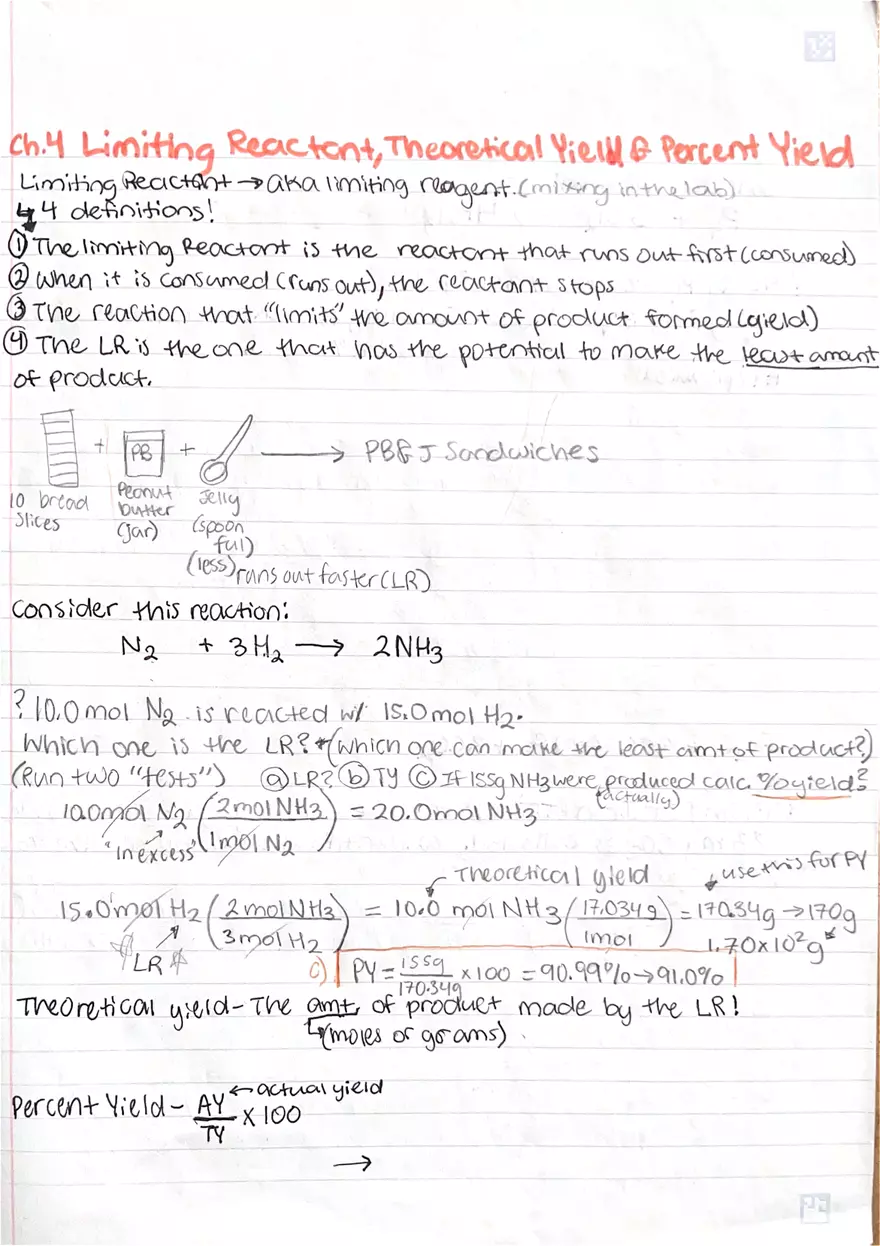 Ch.4 Limiting Reactant, Theoretical Yield & Percent Yield
Limiting Reactant → aka limiting reagent. (mixing in the lab)
↳ 4 definitions!
① The limiting Reactant is the reactant that runs out first (consumed)
② When it is consumed (runs out), the reactant stops
③ The reaction that "limits" the amount of product formed (yield)
④ The LR is the one that has the potential to make the least amount
of product.
+ PB + → PB & J Sandwiches
10 bread slices
Peanut butter (jar)
Jelly (spoon ful)
(less) runs out faster (LR)
Consider this reaction:
N₂ + 3H₂ → 2NH₃
? 10.0 mol N₂ is reacted w/ 15.0 mol H₂.
Which one is the LR? * (which one can make the least amt of product?)
(Run two "tests") ⓐ LR? ⓑ TY ⓒ If 155g NH₃ were produced calc. % yield?
(actually)
10.0 mol N₂ (2 mol NH₃ / 1 mol N₂) = 20.0 mol NH₃
"In excess"
Theoretical yield
use this for PY
15.0 mol H₂ (2 mol NH₃ / 3 mol H₂) = 10.0 mol NH₃ (17.034g / 1 mol) = 170.34g → 170g
1.70 x 10² g
LR
c) PY = 155g / 170.34g x 100 = 90.99% → 91.0%
Theoretical yield - The amt. of product made by the LR!
↳ (moles or grams)
Percent Yield - AY / TY x 100
← actual yield
→